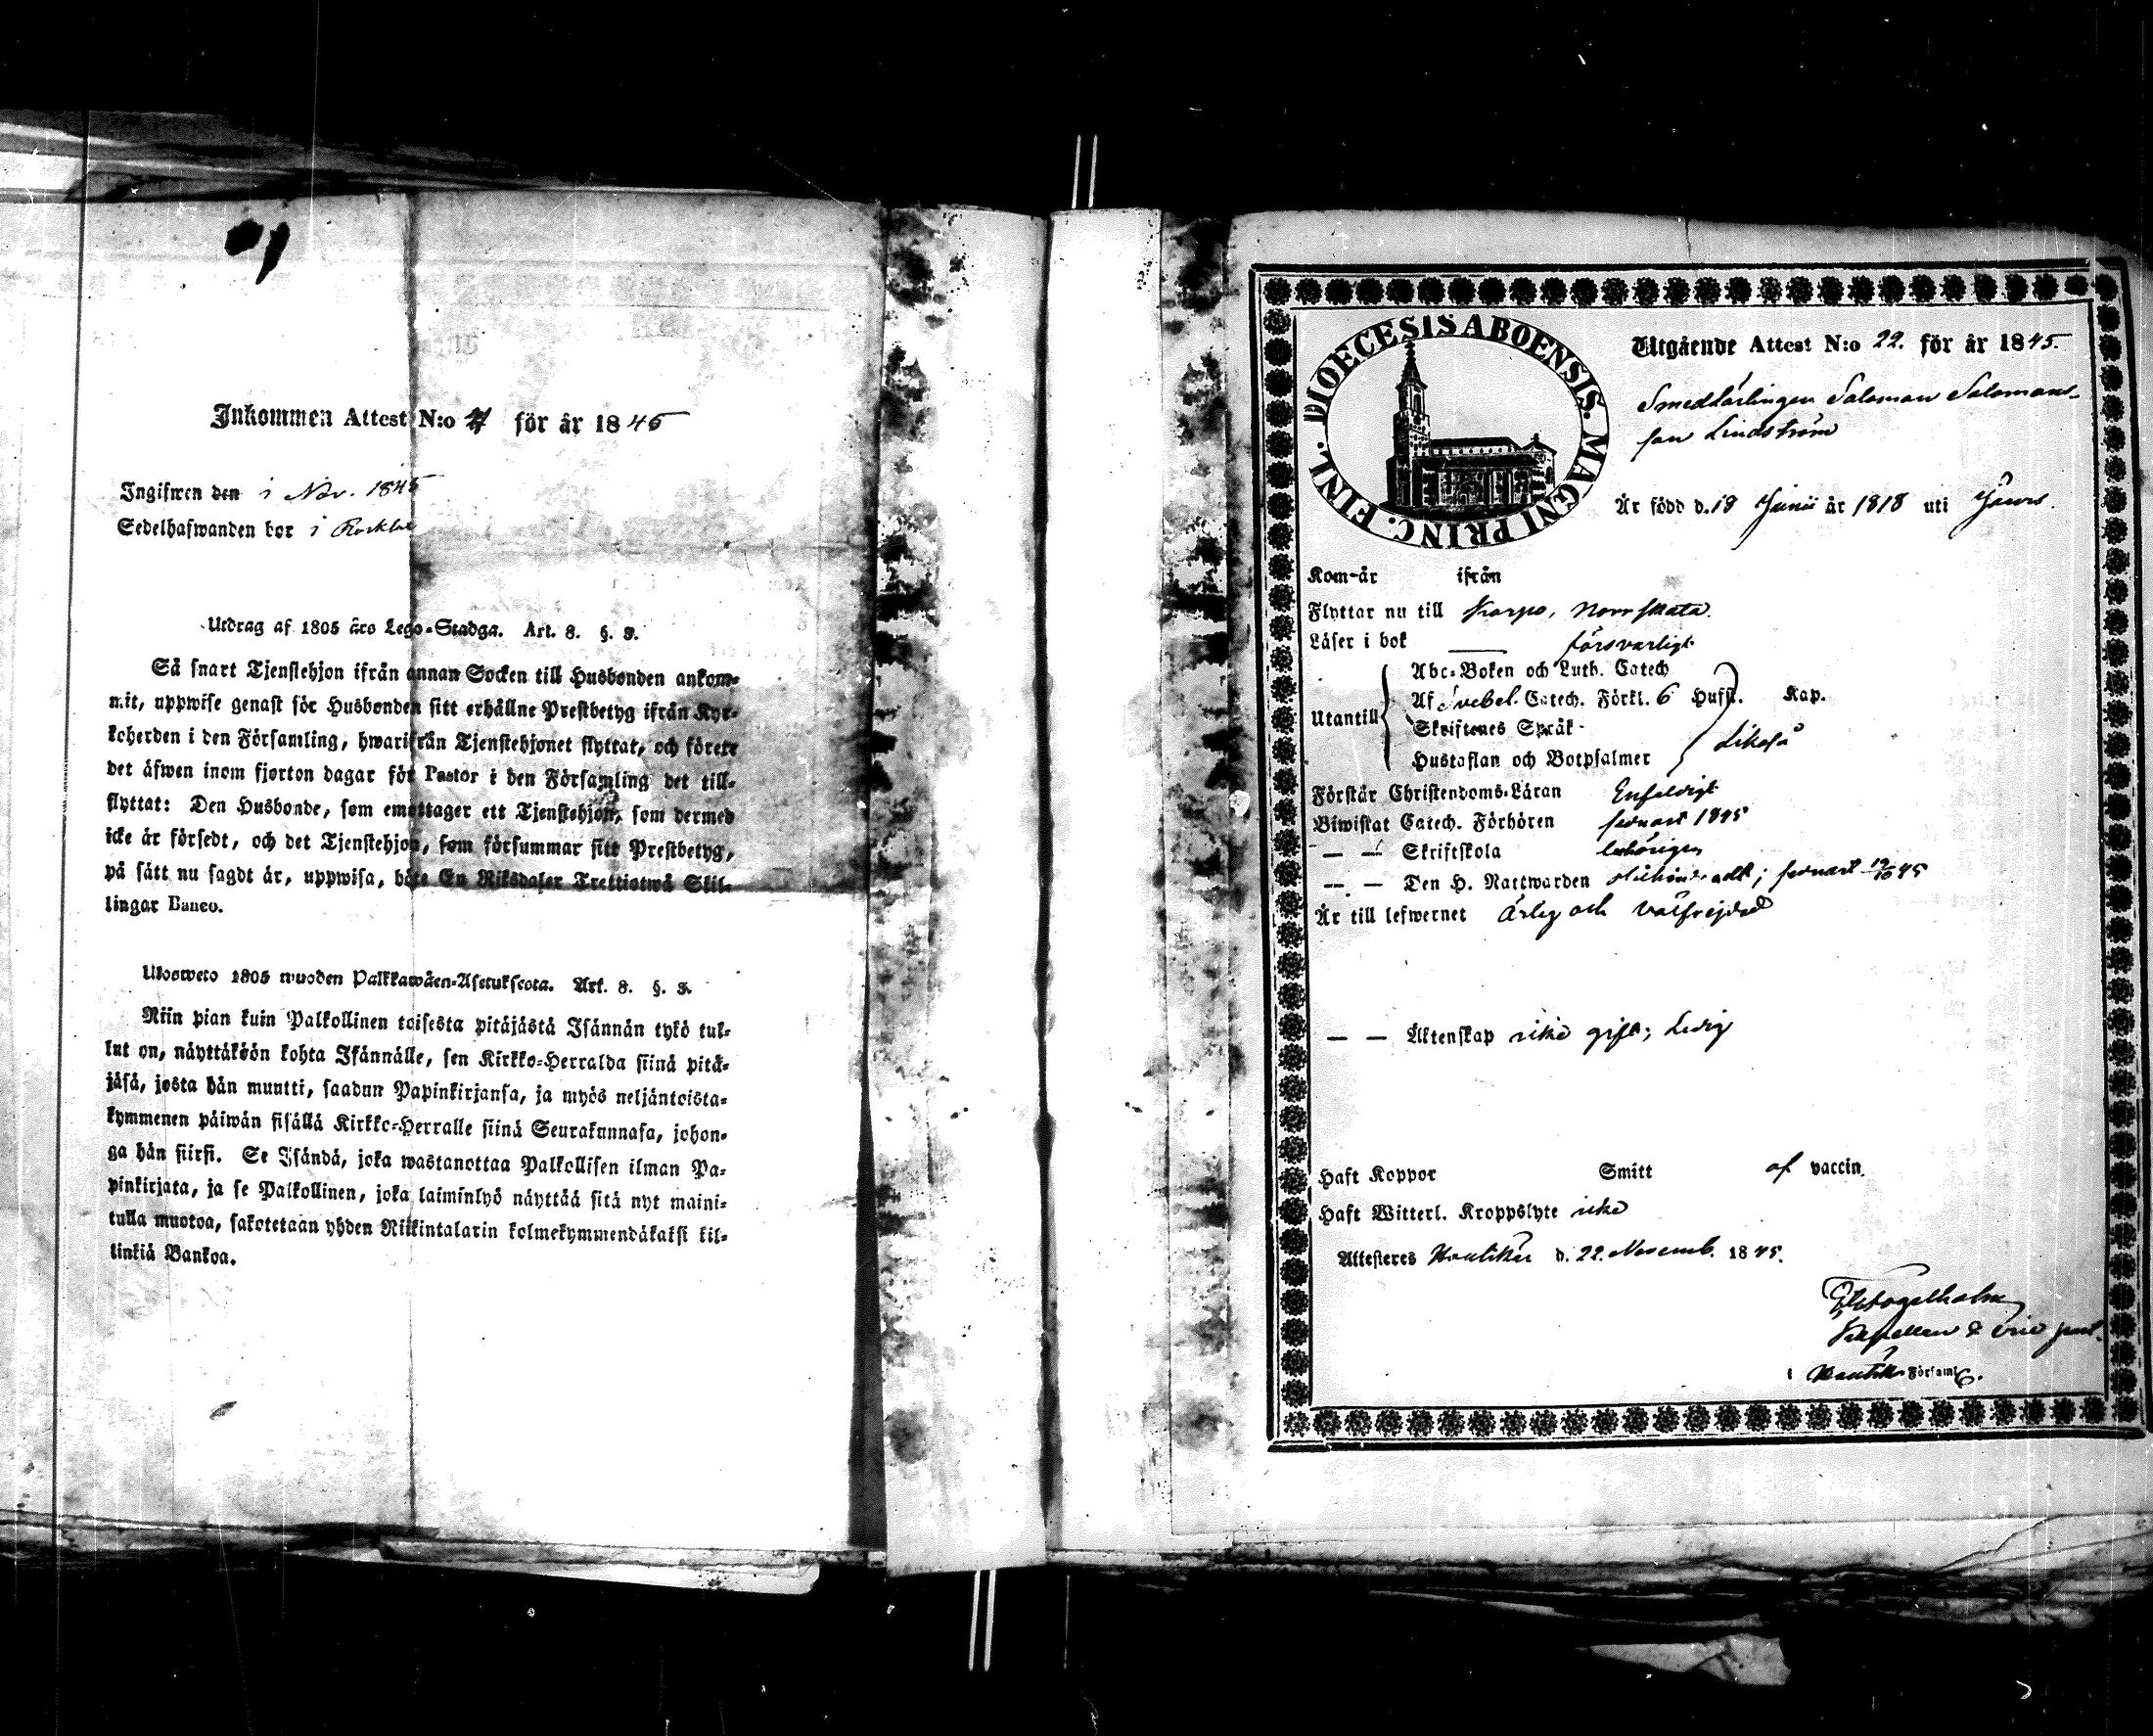 Inkommen Attest N:o 4 för år 1845
Ingifwen den 1 Nov. 1845
Sedelhafwanden bor i
Utdrag af 1805 års Lego-Stadga. Art. 8. §. 3.
Så snart Tjenstehjon ifrån annan Socken till Husbonden ankom-
mit, uppwise genast för Husbonden sitt erhållne Prestbetyg ifrån Kyr-
koherden i den Församling, hwarifrån Tjenstehjonet flyttat, och förete
det äfwen inom fjorton dagar för Pastor i den Församling det till-
flyttat: Den Husbonde, som emottager ett Tjenstehjon, som dermed
icke är försedt, och det Tjenstehjon, som försummar sitt Prestbetyg,
på sätt nu sagdt är, uppwisa, böte En Riksdaler Trettiotwå Skil-
lingar Banco.
Ulosweto 1805 wuoden Palkkawäen-Asetuksesta. Art. 8. §. 3.
Niin pian kuin Palkollinen toisesta pitäjästä Isännän tykö tul-
lut on, näyttäköön kohta Isännälle, sen Kirkko-Herralda siinä pitä-
jäsä, josta hän muutti, saadun Papinkirjansa, ja myös neljäntoista-
kymmenen päiwän sisällä Kirkko-Herralle siinä Seurakunnasa, johon-
ga hän siirsi. Se Isändä, joka wastanottaa Palkollisen ilman Pa-
pinkirjata, ja se Palkollinen, joka laiminlyö näyttää sitä nyt maini-
tulla muotoa, sakotetaan yhden Riikintalarin kolmekymmendäkaksi kil-
linkiä Bankoa.
DIOECESIS ABOENSIS. MAGNI PRINC. FINL.
Utgående Attest N:o 22. för år 1845.
Smedlärlingen Salomon Salomons-
son Lindström
Är född d. 19 Junii år 1818 uti
Kom-år ifrån
Flyttar nu till Korpo, Norrskata.
Läser i bok försvarligt
Abc-Boken och Luth. Catech
Af Svebel. Catech. Förkl. 6 Hufst. Kap.
Utantill
Skriftenes Språk
Likaså
Hustaflan och Botpsalmer
Förstår Christendoms-Läran Enfaldigt
Biwistat Catech. Förhören senast 1845
— — Skriftskola behörigen
— — Den H. Nattwarden oklandradt; senast 19/10 45
Är till lefwernet Ärlig och välfrejdad
— — Äktenskap icke gift; Ledig
Haft Koppor Smitt af vaccin.
Haft Witterl. Kroppslyte icke
Attesteras Houtskär d. 22. Novemb. 1845.
i Houtskärs Församl.